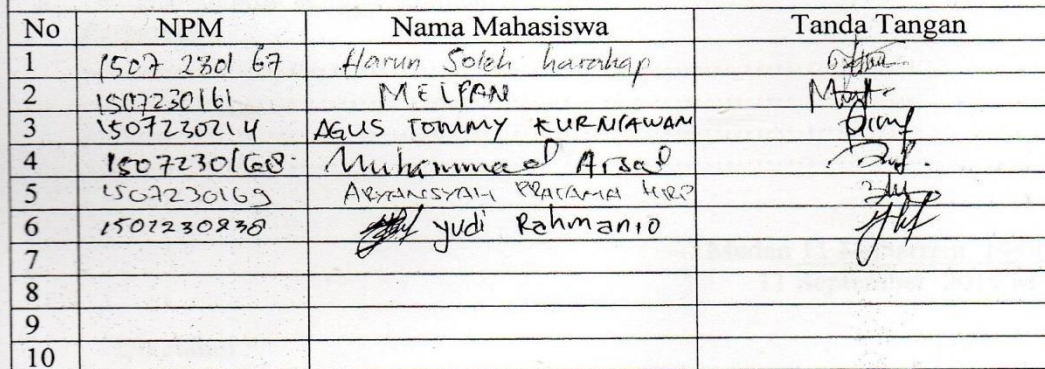 No NPM Nama Mahasiswa Tanda Tangan
1 1507230167 Harun Soleh harahap
2 1507230161 MELFAN
3 1507230214 AGUS TOMMY KURNIAWAN
4 1507230168 Muhammad Arsad
5 1507230169 ARYANSYAH PRATAMA HRP
6 1507230238 yudi Rahmanio
7
8
9
10